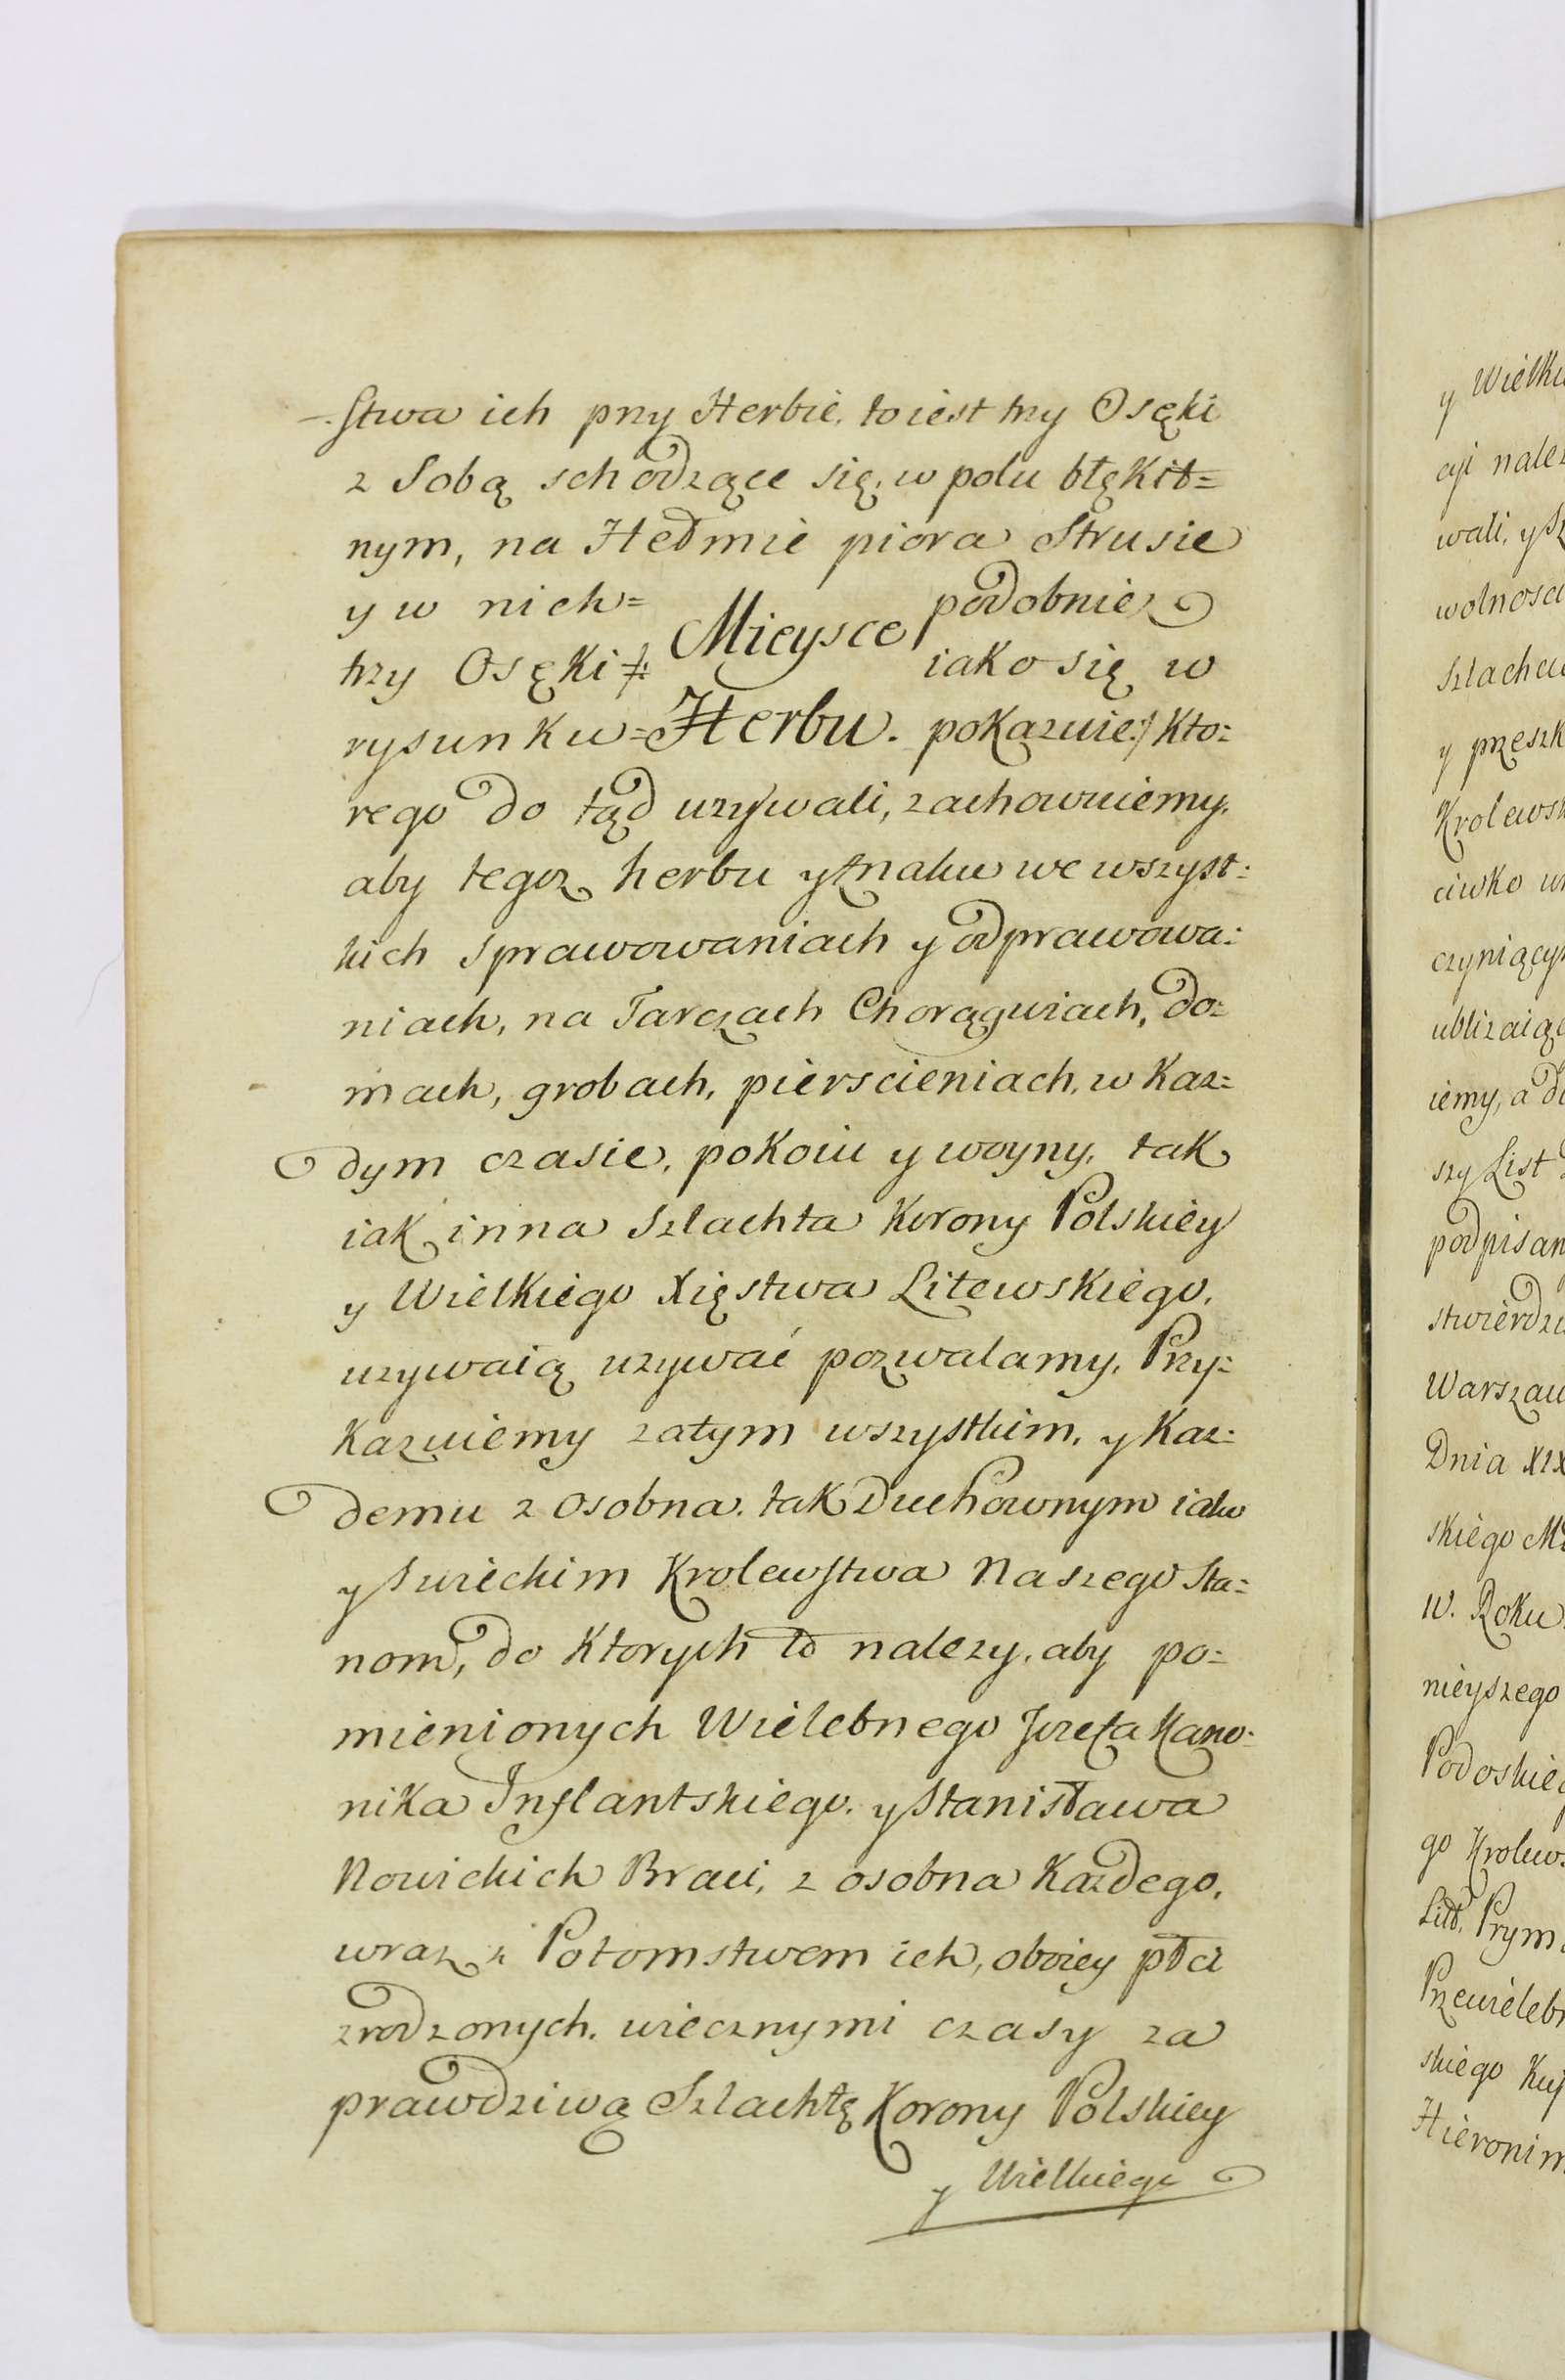 -stwa ich przy Herbie, to iest trzy Osęki
z Sobą schodzące się, w polu błękit=
nym, na Hełmie piora Strusie
y w nich= podobnie
Mieysce
trzy Osęki /: iako się w
rysunku= Herbu. pokazuie :/ kto=
rego do tąd uzywali, zachowuiemy,
aby tegoz herbu y znaku we wszyst=
kich sprawowaniach y odprawowa=
niach, na Tarczach Chorągwiach, do=
mach, grobach, pierscieniach, w kaz=
dym czasie, pokoiu y woyny, tak
iak inna Szlachta Korony Polskiey
y Wielkiego Xięstwa Litewskiego,
uzywaią uzywać pozwalamy, Przy=
kazuiemy zatym wszystkim, y kaz=
demu z osobna, tak Duchownym iako
y Swieckim Krolewstwa Naszego Sta=
nom, do ktorych to nalezy, aby po=
mienionych Wielebnego Jozefa Kano=
nika Inflantskiego, y Stanisława
Nowickich Braci, z osobna kazdego,
wraz z Potomstwem ich, oboiey płci
zrodzonych, wiecznymi czasy za
prawdziwą Szlachtę Korony Polskiey
y Wielkiego
y Wielki
cyi nalez
wali, y Sz
wolnosci
Szlachec
y przeszk
Krolewsk
ciwko
czyniący
ubliżaiąc
iemy, a
szy List
podpisan
stwierdzi
Warszaw
Dnia XIX
skiego
IV. Roku
nieyszego
Podoskieg
go Krolew
Litt. Prym
Przewieleb
skiego Kuj
Hieronim